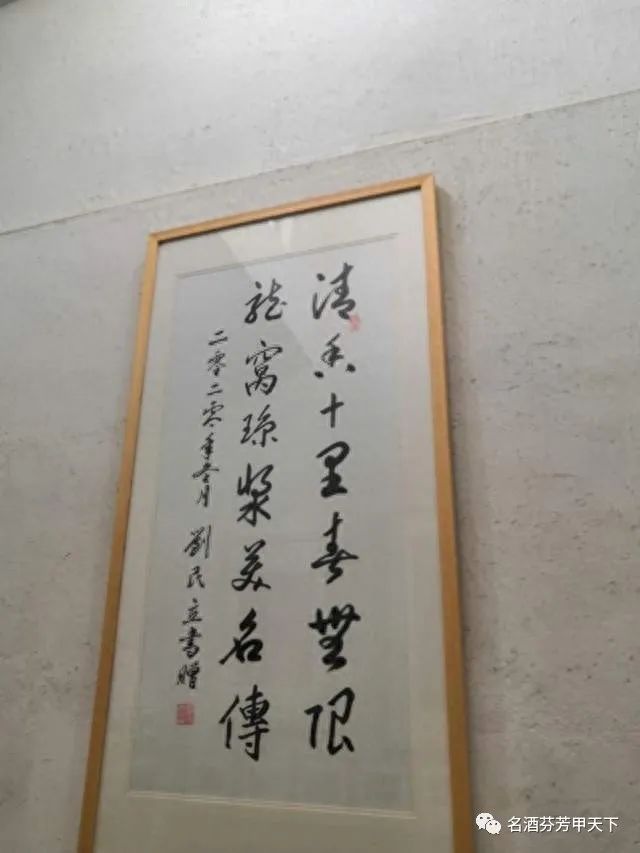 清香十里春無限
龍窩瓊漿美名傳
二零二零年冬月 劉民立書贈
名酒芬芳甲天下